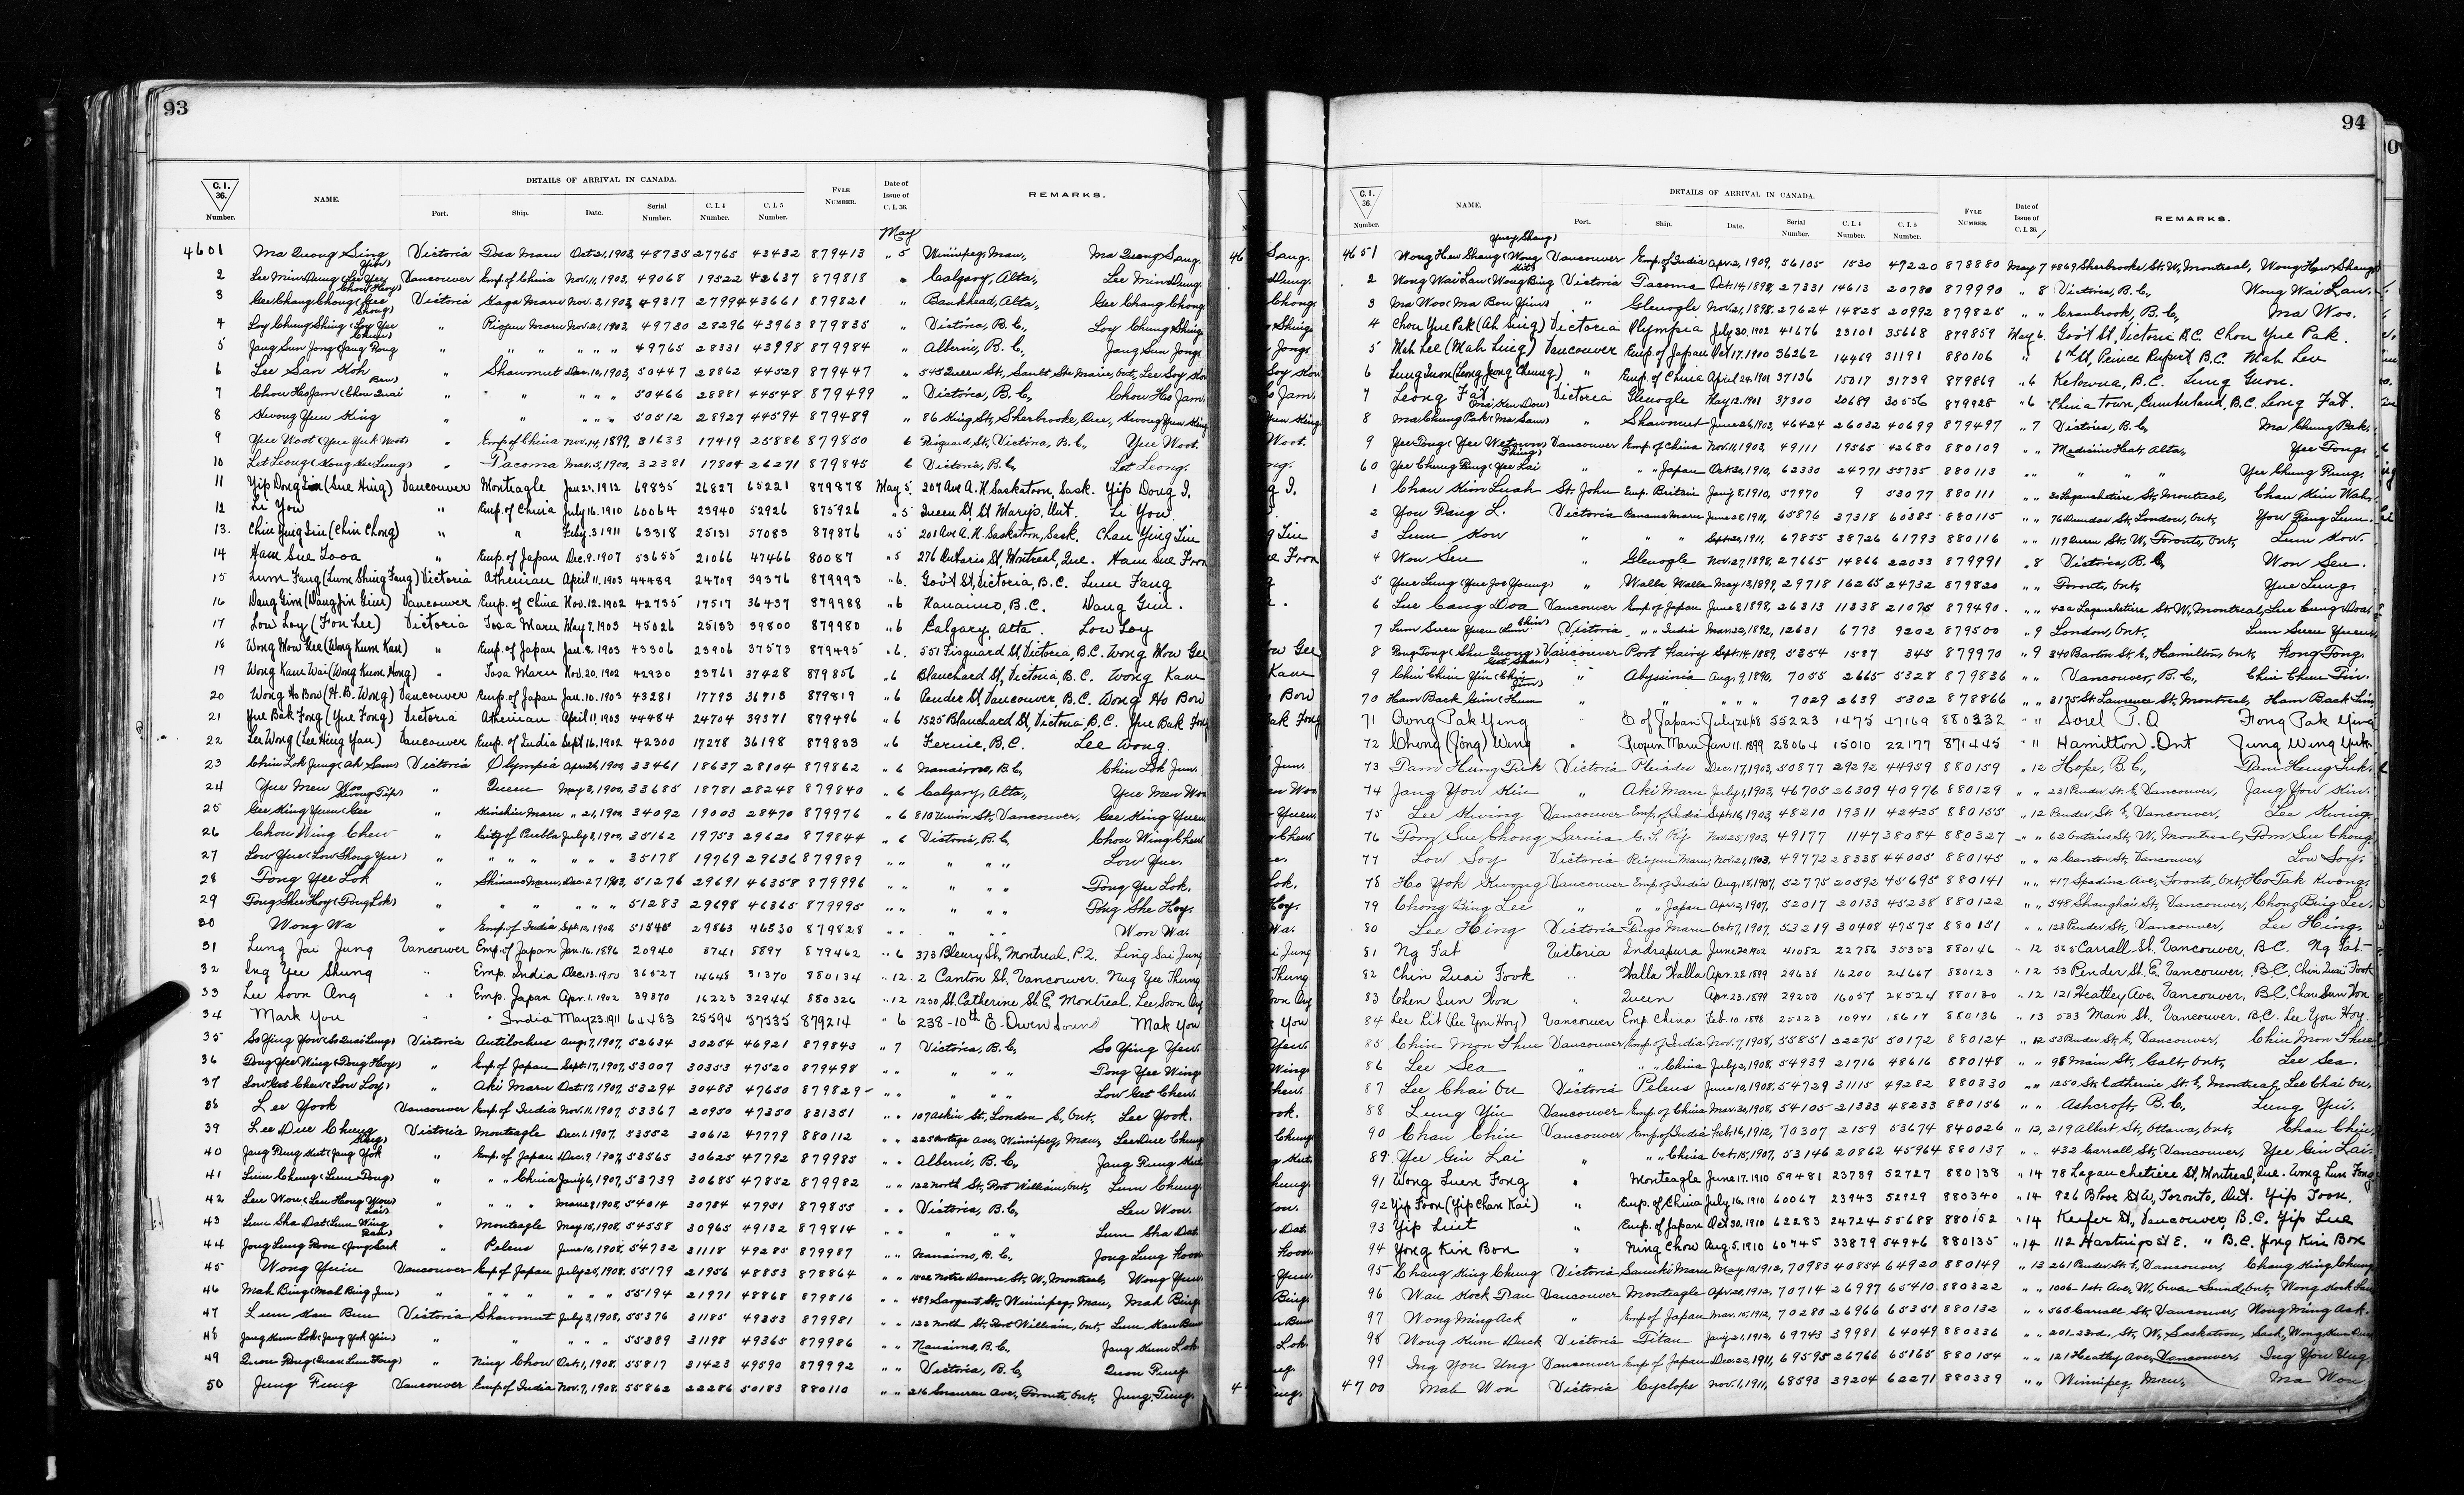 93
C. I. 36. Number. NAME. DETAILS OF ARRIVAL IN CANADA. Port. Ship. Date. Serial Number. C. I. 4 Number. C. I. 5 Number. FYLE NUMBER. Date of Issue of C. I. 36. REMARKS.
May
4601 Ma Quong Sing Victoria Tosa Maru Oct. 21, 1903 48735 27765 43432 879413 " 5 Winnipeg, Man., Ma Quong Sang.
2 Lee Min Dung (Lee Yee Yin) Vancouver Emp. of China Nov. 11, 1903, 49068 19522 42637 879818 " Calgary, Alta., Lee Min Dung.
3 Gee Chang Chong (Gee Chow Hoy) Victoria Kaga Maru Nov. 2, 1903, 49317 27994 43661 879821 " Bankhead, Alta., Gee Chang Chong
4 Loy Chung Shing (Loy Yee Shong) " Riojun Maru Nov. 21, 1903, 49730 28296 43963 879835 " Victoria, B.C., Loy Chung Shing
5 Jang Sun Jong (Jang Rong " " " " " " 49765 28331 43998 879984 " Alberni, B.C., Jang Sun Jong.
6 Lee San Koh " Shawmut Dec. 10, 1903, 50447 28862 44529 879447 " 545 Queen St., Sault Ste Marie, Ont., Lee Soy Kow
7 Chow Hoo Jam (Chow Quai Bew) " " " " " 50466 28881 44548 879499 " Victoria, B.C., Chow Ho Jam.
8 Kwong Yun King " " " " 50512 28927 44594 879489 " 86 King St., Sherbrooke, Que., Kwong Yun King
9 Yue Woot (Yue Yuk Woot) " Emp. of China Nov. 14, 1899, 31633 17419 25886 879850 6 Victoria, B.C., Yue Woot.
10 Let Leong " Tacoma Mar. 5, 1900, 32381 17804 26271 879845 6 Victoria, B.C., Let Leong.
11 Yip Dong (Sue Hing) Vancouver Monteagle Jan. 21. 1912 69835 26827 65221 879878 May 5. 207 Ave A. N. Saskatoon, Sask. Yip Dong I.
12 Li You " Emp. of China July 16. 1910 60064 23940 52926 875926 " 5 Queen St, St Marys, Ont. Li You
13. Chin Jing Lin (Chin Chong) " " Feby. 3. 1911 63318 25131 57083 879876 " 5 201 Ave A. N. Saskatoon, Sask. Chan Ying Lin
14 Ham Sue Fooa " Emp. of Japan Dec. 9. 1907 53655 21066 47466 80087 " 5 276 Ontario St, Montreal, Que. Ham Sue Fron
15 Lum Fang (Lum Shing Fang) Victoria Athenian April 11. 1903 44489 24709 39376 879993 " 6. Gov't St, Victoria, B.C. Lum Fang
16 Dang Gim Vancouver Emp. of China Nov. 12. 1902 42735 17517 36437 879988 " 6 Nanaimo, B.C. Dang Gim.
17 Low Loy (Fon Lee) Victoria Tosa Maru May 7. 1903 45026 25133 39800 879980 " 6 Calgary, Alta. Low Loy
18 Wong Mow Gee (Wong Kum Kau) " Emp. of Japan Jan. 8. 1903 43306 23906 37573 879495 " 6. 551 Fisguard St, Victoria, B.C. Wong Mow Gee
19 Wong Kam Wai (Wong Kum Hong) " Tosa Maru Nov. 20. 1902 42930 23761 37428 879856 " 6 Blanchard St, Victoria, B.C. Wong Kam
20 Wong Ho Bow (H. B. Wong) Vancouver Emp. of Japan Jan. 10. 1903 43281 17793 36713 879819 " 6 Pender St, Vancouver, B.C. Wong Ho Bow
21 Yue Bak Fong (Yue Fong) Victoria Athenian April 11. 1903 44484 24704 39371 879496 " 6 1525 Blanchard St, Victoria B.C. Yue Bak Fong
22 Lee Wong (Lee Hing Yau) Vancouver Emp. of India Sept. 16. 1902 42300 17278 36198 879833 " 6 Fernie, B.C. Lee Wong.
23 Chin Lok Jung (Ah Sam) Victoria Olympia Apr. 26, 1900, 33461 18637 28104 879862 " 6 Nanaimo, B.C., Chin Lok Jun.
24 Yue Men Woo " Queen May 3, 1900, 33685 18781 28248 879840 " 6 Calgary, Alta., Yue Men Woo
25 Gee King Yuen (Gee Kwong Tip) " Kinshiu Maru " 21, 1900, 34092 19003 28470 879976 " 6 810 Union St., Vancouver, Gee King Yuen
26 Chow Wing Chew " City of Puebla July 3, 1900, 35162 19753 29620 879844 " 6 Victoria, B.C., Chow Wing Chew
27 Low Yue (Low Shong Yue) " " " " " " " 35178 19769 29636 879989 " " " " " Low Yue.
28 Tong Yee Lok " Shinano Maru, Dec. 27, 1903, 51276 29691 46358 879996 " " " " " Tong Yee Lok.
29 Tong Shee Hoy (Tong Lok) " " " " " " 51283 29698 46365 879995 " " " " " Tong She Hoy.
30 Wong Wa " Emp. of India Sept. 12, 1903, 51545 29863 46530 879828 " " " " " Won Wa.
31 Lung Jai Jung Vancouver Emp. of Japan Jan. 16. 1896 20940 8741 8897 879462 " 6 373 Bleury St, Montreal, P.2. Ling Sai Jung
32 Ing Yee Shung " Emp. India Dec. 13. 1900 36527 14648 31370 880134 " 12. 2 Canton St. Vancouver. Nug Yee Thung
33 Lee Soon Ang " " Emp. Japan Apr. 1. 1902 39870 16223 32944 880326 " 12 1250 St. Catherine St. E. Montreal. Lee Soon Ang
34 Mark You " " India May 23. 1911 64483 25594 57535 879214 " 6 238-10th E. Owen Sound Mak You
35 So Ying Yow (So Quai Lung) Victoria Antilochus Aug. 7, 1907, 52634 30254 46921 879843 " 7 Victoria, B.C., So Ying Yew.
36 Dong Yee Wing (Dong Hoy) " Emp. of Japan Sept. 17, 1907, 53007 30353 47520 879498 " " " " " Dong Yee Wing
37 Low Get Chew (Low Loy) " Aki Maru Oct. 17, 1907, 53294 30483 47650 879829 " " " " " Low Get Chew.
38 Lee Yook Vancouver Emp. of India Nov. 11, 1907, 53367 20950 47350 831351 " " 107 Askin St., London S., Ont., Lee Yook.
39 Lee Due Chung Victoria Monteagle Dec. 1, 1907, 53552 30612 47779 880112 " " 225 Portage Ave., Winnipeg, Man., Lee Due Chung
40 Jang Rung Kut (Jang Yok Sing) " Emp. of Japan Dec. 9, 1907, 53565 30625 47792 879985 " " Alberni, B.C., Jang Rung Kut
41 Lum Chung (Lum Dong) " " " China Jan'y 6, 1907, 53739 30685 47852 879982 " " 122 North St., Port William, Ont., Lum Chung.
42 Leu Won (Leu Hong Won) " " " " Mar. 8, 1908, 54014 30784 47951 879855 " " Victoria, B.C., Leu Won.
43 Lum Sha Dat (Lum Wing Lai) " Monteagle May 15, 1908, 54558 30965 49132 879814 " " " " " Lum Sha Dat.
44 Jong Lung Roon (Jong Sark " Peleus June 10, 1908, 54732 31118 49285 879987 " " Nanaimo, B.C., Jong Lung Hoon
45 Wong Yuin Vancouver Emp. of Japan July 25, 1908, 55179 21956 48853 878864 " " 1502 Notre Dame St. W., Montreal, Wong Yuen
46 Mah Bing (Mah Bing Jun) " " " " " " " 55194 21971 48868 879816 " " 489 Sargent St., Winnipeg, Man., Mah Bing.
47 Lum Kau Bun Victoria Shawmut July 3, 1908, 55376 31185 49353 879981 " " 122 North St., Port William, Ont., Lum Kau Bun
48 Jang Kum Lok (Jang Yok Yin) " " " " " 55389 31198 49365 879986 " " Nanaimo, B.C., Jang Kum Lok
49 Quon Rong (Quan Lum Fong) " Ning Chow Oct. 1, 1908, 55817 31423 49590 879992 " " Victoria, B.C., Quon Rung.
50 Jung Fung Vancouver Emp. of India Nov. 7, 1908, 55862 22286 50183 880110 " " Ave., Toronto, Ont., Jung Fung.
94
C. I. 36. Number. NAME. DETAILS OF ARRIVAL IN CANADA. Port. Ship. Date. Serial Number. C. I. 4 Number. C. I. 5 Number. FYLE NUMBER. Date of Issue of C. I. 36. REMARKS.
4651 Wong Hew Shang (Wong Yuey Shang) Vancouver Emp. of India Apr. 2, 1909, 56105 1530 47220 878880 May 7 4869 Sherbrooke St. W., Montreal, Wong Hew Shang
2 Wong Wai Lau (Wong Bing Victoria Tacoma Oct. 14, 1898, 27331 14613 20780 879990 " 8 Victoria, B.C., Wong Wai Lau.
3 Ma Woo (Ma Bow Yin) " Glenogle Nov. 21, 1898, 27624 14825 20992 879825 " " Cranbrook, B.C., Ma Woo.
4 Chou Yue Pak (Ah Sing) Victoria Olympia July 30. 1902 41676 23101 35668 879859 May 6. Gov't St, Victoria B.C. Chou Yue Pak.
5 Mah Lee (Mah Ling) Vancouver Emp. of Japan Oct. 17. 1900 36262 14469 31191 880106 " 6th St, Prince Rupert, B.C. Mah Lee
6 Lung Guon (Leong Jong Cheung) " Emp. of China April 24. 1901 37136 15017 31739 879869 " 6 Kelowna, B.C. Lung Guon.
7 Leong Fat Victoria Glenogle May 12. 1901 37300 20689 30556 879928 " 6 China town, Cumberland, B.C. Leong Fat.
8 Ma Chung Pak (Ma Sam) " Shawmut June 26, 1903, 46424 26032 40699 879497 " 7 Victoria, B.C., Ma Chung Pak.
9 Yee Tong Vancouver Emp. of China Nov. 11, 1903, 49111 19565 42680 880109 " " Medicine Hat, Alta., Yee Tong.
60 Yee Chung Rung (Yee Lai " " " Japan Oct. 30, 1910, 62330 24771 55735 880113 " " " " " Yee Chung Rung.
1 Chau Kim Luah St. John Emp. Britain Jan'y 8, 1910, 57970 9 53077 880111 " " 30 Lagauchetiere St., Montreal, Chau Kim Wah.
2 You Rang L. Victoria Panama Maru June 28, 1911, 65876 37318 60385 880115 " " 76 Dundas St., London, Ont., You Rang Lum.
3 Lum Kow " " " Sept. 20, 1911, 67855 38726 61793 880116 " " 117 Queen St. W., Toronto, Ont., Lum Kow.
4 Won Sen " Glenogle Nov. 27, 1898, 27665 14866 22033 879991 " 8 Victoria, B.C., Won Sen.
5 Yue Lung (Yue Joo Young) " Walla Walla May 13, 1899, 29718 16265 24732 879820 " " Toronto, Ont., Yue Lung.
6 Lue Cang Doa Vancouver Emp. of Japan June 8, 1898, 26313 11338 21075 879490 " " 42a Lagauchetiere St. W., Montreal, Lue Cung Doa.
7 Lum Suen Yuen Victoria " " India Mar. 22, 1892, 12631 6773 9202 879500 " 9 London, Ont., Lum Suen Yuen
8 Rong Tong (Shu Quong Vancouver Port Fairy Sept. 14, 1889, 5354 1587 345 879970 " 9 340 Barton St. E., Hamilton, Ont., Hong Tong.
9 Chin Chin Yin " Abyssinia Aug. 9, 1890, 7055 2665 5328 879836 " " Vancouver, B.C., Chin Chin Yin.
70 Ham Back Gim (Hum " " " " " 7029 2639 5302 878866 " " 3175 St. Lawrence St., Montreal, Ham Back Gim
71 Qong Pak Ying " E of Japan July 24/08 55223 1475 47169 880332 " " Sorel P.Q Hong Pak Ying
72 Chong (Jong) Wing " Riojun Maru Jan 11. 1899 28064 15010 22177 871445 " 11 Hamilton. Ont Jung Wing Yuk
73 Tam Hung Tuk Victoria Pleiades Dec. 17, 1903, 50877 29292 44959 880159 " 12 Hope, B.C., Tam Hung Tuk.
74 Jang Yow Kin " Aki Maru July 1, 1903, 46705 26309 40976 880129 " " 231 Pender St. E, Vancouver, Jang Yow Kin.
75 Lee Kwing Vancouver Emp. of India Sept. 16, 1903, 48210 19311 42425 880155 " 12 Pender St. E, Vancouver, Lee Kwing.
76 Tom Sue Chong Sarnia C. P. R'y Nov. 25, 1903, 49177 1147 38084 880327 " " 62 Ontario St. W, Montreal, Tom Sue Chong.
77 Low Soy Victoria Riojun Maru, Nov. 21, 1903, 49772 28338 44005 880145 " " 12 Canton St, Vancouver, Low Soy.
78 Ho Yok Kwong Vancouver Emp. of India Aug. 18, 1907, 52775 20592 45695 880141 " " 417 Spadina Ave, Toronto, Ont, Ho Tak Kwong.
79 Chong Bing Lee " " " Japan Apr. 2, 1907, 52017 20133 45238 880122 " " 548 Shanghai St., Vancouver, Chong Bing Lee.
80 Lee Hing Victoria Tango Maru Oct. 7, 1907, 53219 30408 47575 880151 " " 123 Pender St., Vancouver, Lee Hing.
81 Ng Fat Victoria Indrapura June 20 1902 41082 22786 35353 880146 " 12 525 Carrall St. Vancouver, B.C. Ng Fat
82 Chin Quai Fook " Walla Walla Apr. 28. 1899 29638 16200 24667 880123 " 12 53 Pender St. E, Vancouver, B.C. Chin Quai Fook
83 Chen Sun Won " Queen Apr. 23. 1899 29200 16057 24524 880130 " 12 121 Heatley Ave, Vancouver, B.C. Chau Sun Won
84 Lee Lit (Lee You Hoy) Vancouver Emp. China Feb. 10. 1898 25323 10971 18617 880136 " 13 533 Main St, Vancouver, B.C. Lee You Hoy.
85 Chin Mon Shue Vancouver Emp. of India Nov. 7, 1908, 55851 22275 50172 880124 " 12 53 Pender St. E, Vancouver, Chin Mon Shue
86 Lee Sea " " " China July 2, 1908, 54939 21716 48616 880148 " " 98 Main St., Galt, Ont., Lee Sea.
87 Lee Chai Ou Victoria Peleus June 10, 1908, 54729 31115 49282 880330 " " 1250 St. Catherine St. E, Montreal, Lee Chai Ou.
88 Lung Yin Vancouver Emp. of China Mar. 30, 1908, 54105 21333 48233 880156 " " Ashcroft, B.C., Lung Yui.
90 Chan Chin Vancouver Emp. of India Feb. 16, 1912, 70307 2159 53674 840026 " 12, 219 Albert St., Ottawa, Ont., Chan Chin
89. Yee Gin Lai " " " China Oct. 15, 1907, 53146 20862 45964 880137 " " 432 Carrall St., Vancouver, Yee Gin Lai.
91 Wong Luen Fong " Monteagle June 17. 1910 59481 23739 52727 880138 " 14 78 Lagauchetiere St, Montreal, Que. Wong Lun Fong
92 Yip Foon (Yip Chan Kai) " Emp. of China July 16. 1910 60067 23943 52929 880340 " 14 926 Bloor St W, Toronto, Ont. Yip Toon.
93 Yip Luit " Emp. of Japan Oct 30. 1910 62283 24724 55688 880152 " 14 Keefer St, Vancouver, B.C. Yip Lue
94 Yong Kin Bon " Ning Chow Aug. 5. 1910 60745 33879 54946 880135 " 14 112 Hastings St E. " B.C. Yong Kin Bon
95 Chang King Chung Victoria Sanuki Maru May 12, 1912, 70983 40854 64920 880149 " 13 261 Pender St. E, Vancouver, Chang King Chung
96 Wau Kock Tau Vancouver Monteagle Apr. 20, 1912, 70714 26997 65410 880322 " " 1006-1st. Ave. W., Owen Sound, Ont, Wong Kock Tau
97 Wong Ming Ack " Emp. of Japan Mar. 15, 1912, 70280 26966 65351 880132 " " 565 Carrall St, Vancouver, Wong Ming Ack.
98 Wong Kum Duck Victoria Titan Jan'y 21, 1912, 69743 39981 64049 880336 " " 201-23rd. St, W, Saskatoon, Sask, Wong Kum Duck
99 Ing You Ung Vancouver Emp. of Japan Dec. 22, 1911, 69595 26766 65165 880154 " " 121 Heatley Ave, Vancouver, Ing You Ung
4700 Mah Won Victoria Cyclops Nov. 1, 1911, 68593 39204 62271 880339 " " Winnipeg, Man., Ma Won